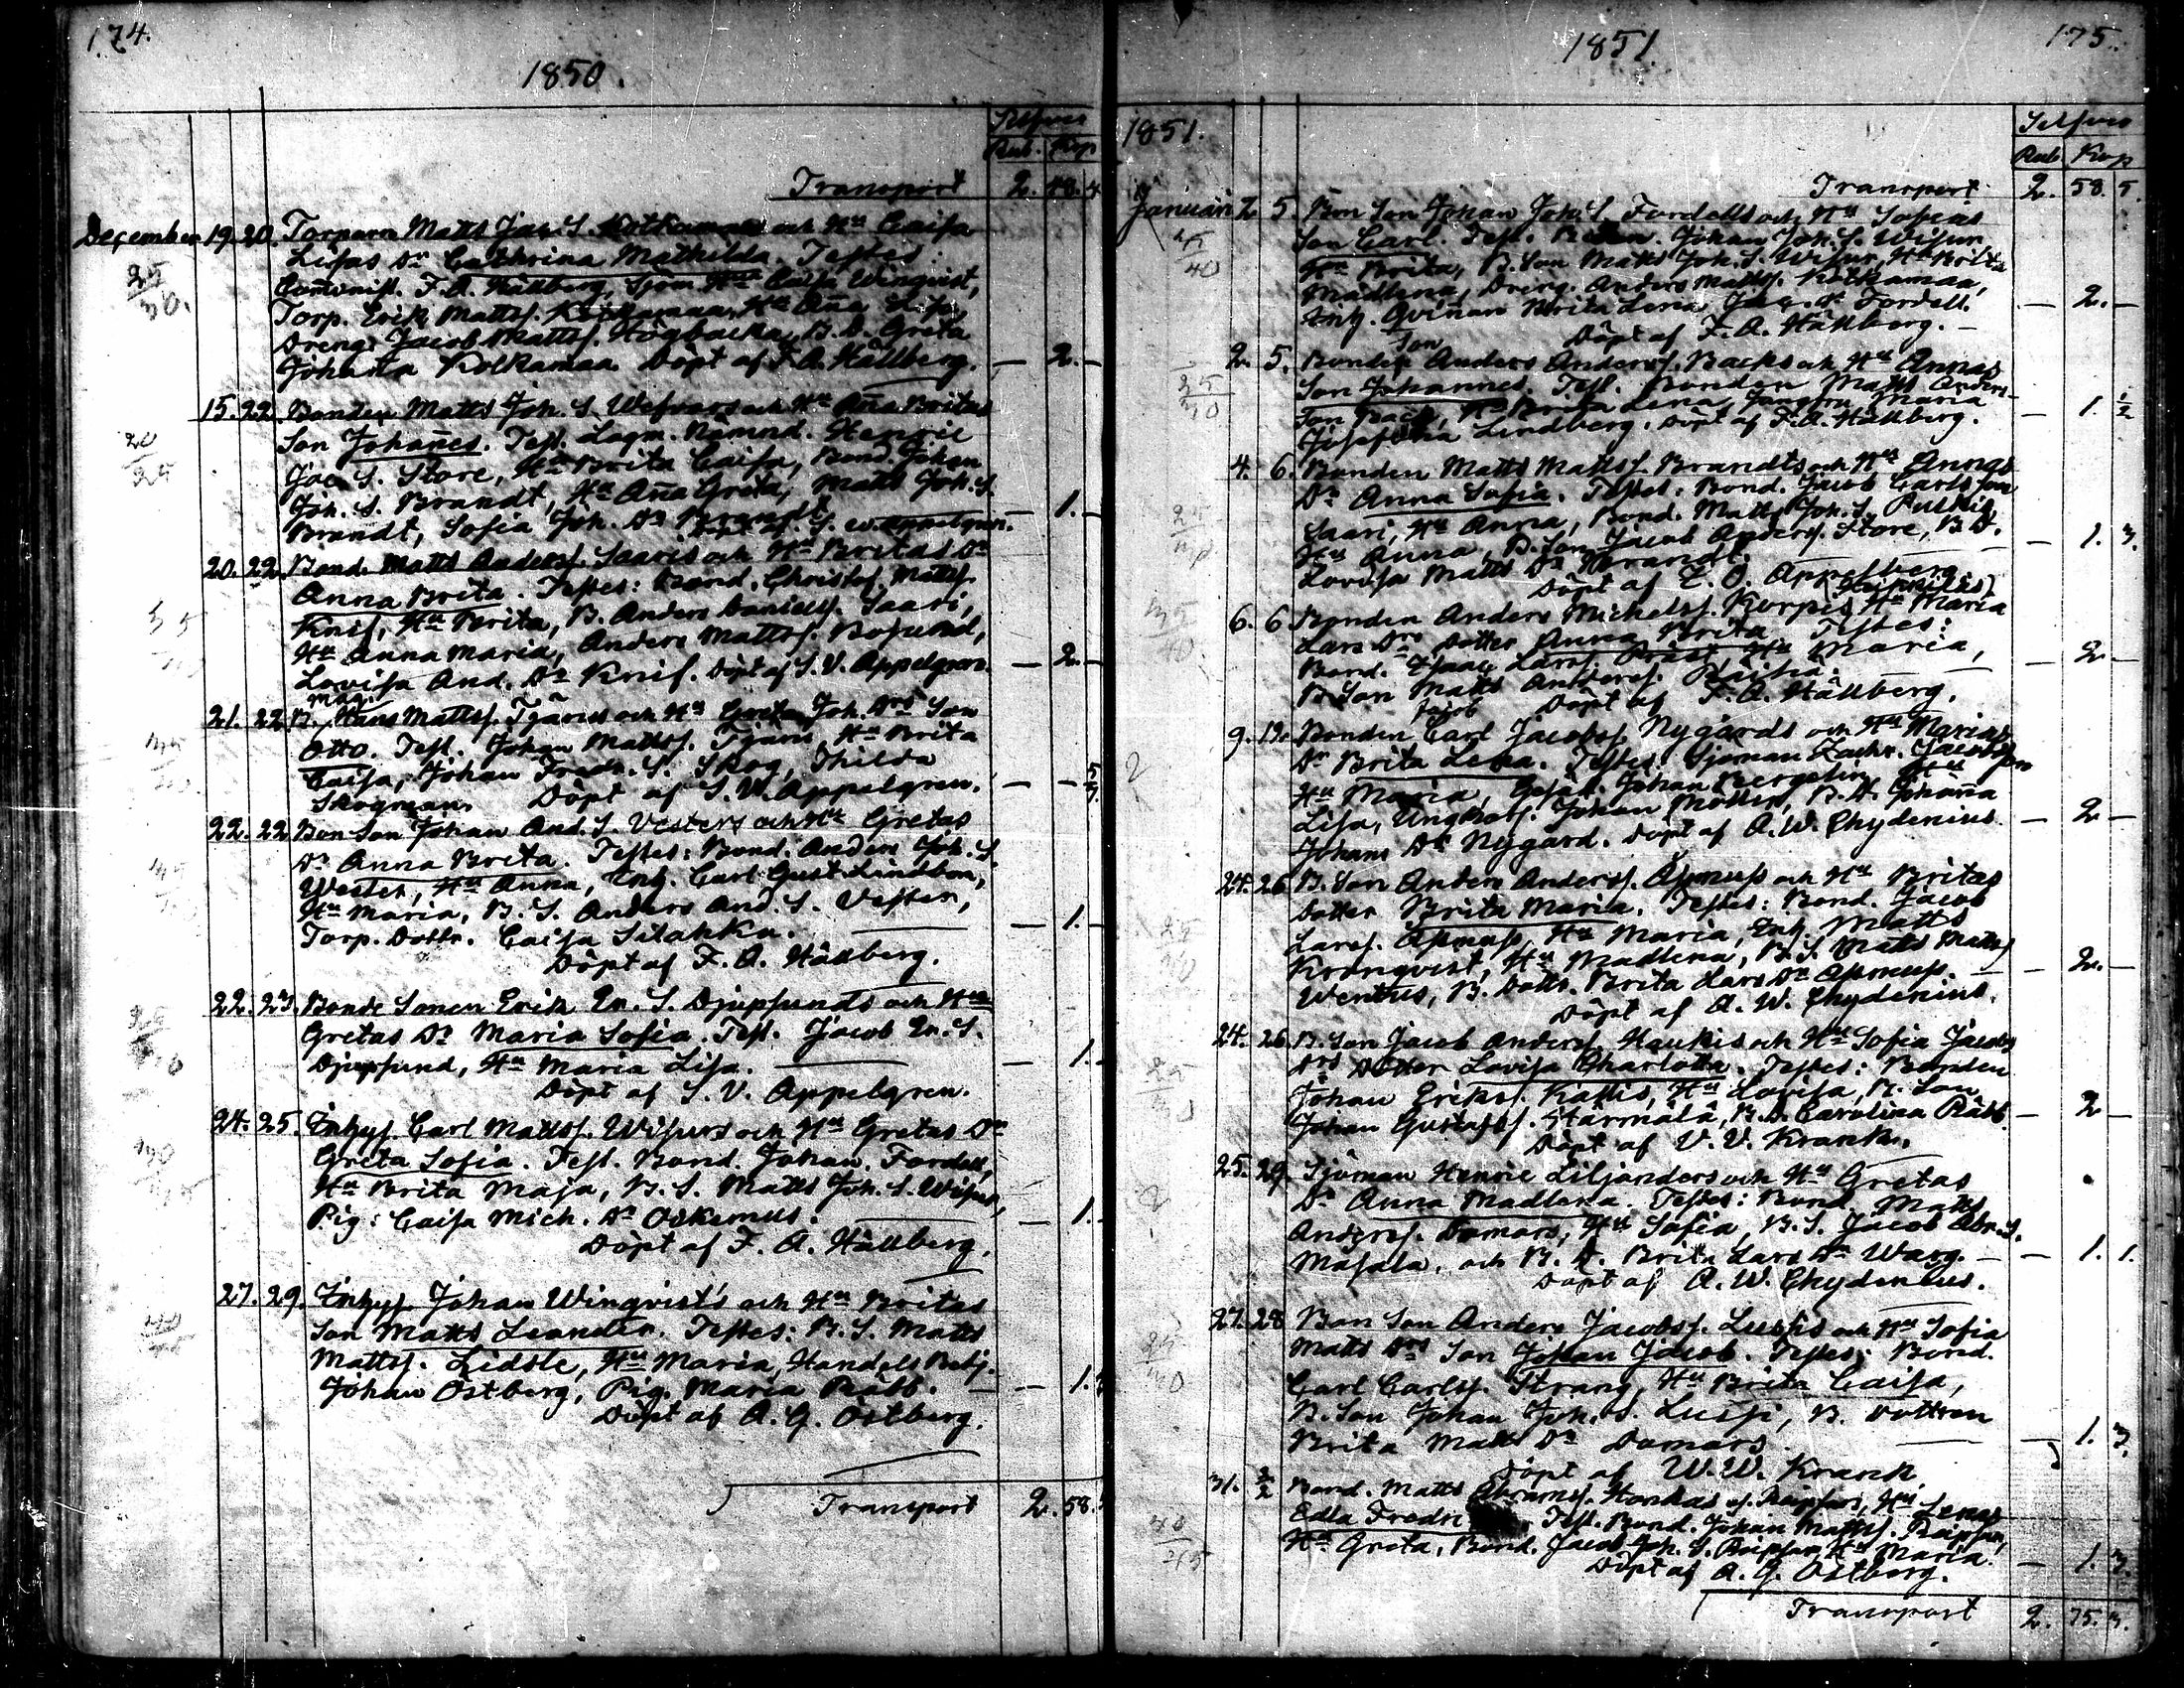 174.
1850.
Silfver
Rub. Kop
Transport 2. 48. 4
December 19. 20. Torparn Matts Jac. S. Kolkamaas och Hu Caisa
Lisas Dr Cathrina Mathilda. Testes:
25
30.
Comminist. F. A. Hällberg, Sjöm. Hu Caisa Winqvist,
Torp. Erik Matts. Kolkamaa, Hu Aña Lisa,
Dreng. Jacob Mattss. Högbacka, B. D. Greta
Johanna Kolkamaa. Döpt af F. A. Hällberg. — 2. —
15. 22. Bonden Matts Joh. S. och Hu Aña Britas
20
25
Son Johañes. Test. Lagm. Nämnd. Henric
Jac. S. Store, Hu Brita Caisa, Bond. Johan
Joh. S. Brandt, Hu Aña Greta, Matts Joh. S.
Brandt, Sofia Joh. Dr Brandt. — 1. —
Döpt af S. W. Appelgren.
20. 22. Bond. Matts Anderss. Saaris och Hu Britas Dr
Anna Brita. Testes: Bond. Christof. Mattss.
35
Knif, Hu Brita, B. Anders Daniels. Saari,
Hu Anna Maria, Anders Mattss. Bosund,
Lovisa And. Dr Knif. Döpt af S. V. Appelgren. — 2. —
Mag.
21. 22. B. Hans Mattss. Tjärus och Hu Greta Joh. Drs Son
Otto. Test. Johan Mattss. Tjäru, Hu Brita
Caisa, Johan Fredr. S. Skog, Thilda
Skogman. Döpt af S. V. Appelgren. — —
22. 22. Bon Son Johan And. S. Vesters och Hu Gretas
Dr Anna Brita. Testes: Bond. Anders Joh. S.
Wester, Hu Anna, Inh. Carl Gust. Lindbom,
Hu Maria, B. S. Anders And. S. Vester,
Torp. Dottr. Caisa Silahka. — 1. —
Döpt af F. A. Hällberg.
22. 23. Bonde Sonen Erik Er. S. Djupsunds och Hu
Gretas Dr Maria Sofia. Test. Jacob Er. S.
Djupsund, Hu Maria Lisa. — 1. —
Döpt af S. V. Appelgren.
24. 25. Inhys. Carl Mattss. Wisurs och Hu Gretas Dr
Greta Sofia. Test. Bond. Johan. Fordell,
Hu Brita Maja, B. S. Matts Joh. S. Wisur,
Pig: Caisa Mich. Dr Oskemus. — 1. —
Döpt af F. A. Hällberg.
27. 29. Inhys. Johan Winqvist's och Hu Britas
Son Matts Leander. Testes: B. S. Matts
Mattss. Lidsle, Hu Maria, Handels Betj.
Johan Östberg, Pig. Maria Rätt. — 1.
Döpt af A. G. Östberg.
Transport 2. 58.
1851.
175.
1851.
Silfver
Rub. Kop
Transport 2. 58. 5.
Januari 2 5. Bon Son Johan Joh. S. Fordells och Hu Sofias
35
40
Son Carl. Test. B. Son. Johan Joh. S. Wisur
Hu Brita, B. Son Matts Joh. S. Wisur, Hu Brita
Madlena, Dreng. Anders Mattss. Kolkamaa,
Inh. Qviñan Brita Lena Jac. Dr Fordell. — 2. —
Döpt af F. A. Hällberg. —
Son
2. 5. Bonden Anders Anderss. Backs och Hu Annas
Son Johannes. Test. Bonden Matts Anders
Son Back, Hu Brita Lena, Jungfru Maria
Josefina Lindberg. Döpt af F. A. Hällberg. — 1. ½
4. 6. Bonden Matts Mattss. Brandts och Hu Annas
Dr Anna Sofia. Testes: Bond. Jacob Carlsson
Saari, Hu Anna, Bond. Matts Joh. S. Ruskis,
Hu Anna, B. Son Jacob Anderss. Store, B D.
Lovisa Matts Dr Brandt. — 1. 3.
Döpt af E. O. Appelberg.
6. 6 Bonden Anders Michelss. Korpis Hu Maria
35
40
Lars Drs Dotter Anna Brita. Testes:
Bond. Isaac Larss. Präst, Hu Maria,
B. Son Matts Anderss. Raitia. — 2 —
Döpt af F. A. Hällberg.
Jacob
9. 19. Bonden Carl Jacobss. Nygårds och Hu Marias
2
Dr Brita Lena. Testes: Sjöman Zachr. Jacobsson
Hu Maria, Gesäll. Johan Bergelin, Hu
Lisa, Ungkarl. Johan Möller, B. D. Johaña
Johans Dr Nygård. Döpt af A. W. Chydenius. — 2 —
24. 26. B. Son Anders Anderss. Åsmus och Hu Britas
Dotter Brita Maria. Testes: Bond. Jacob
Larss. Åsmus, Hu Maria, Inh. Matts
Kronqvist, Hu Madlena, B. S. Matts Matts
B. Dottr. Brita Lars Dr Åsmus. — 2. —
Döpt af A. W. Chydenius.
24. 26. B. Son Jacob Anderss. Haukis och Hu Sofia Jacobs
Drs Dotter Lovisa Charlotta. Testes: Bonden
Johan Erikss. Kattis, Hu Lovisa, B. Son
Johan Gustafss. Härmälä, B. D. Carolina Rätt. — 2 —
Döpt af V. V. Krank.
25. 29. Sjöman Henric Liljanders och Hu Gretas
2
Dr Anna Madlena. Testes: Bond. Matts
Anderss. Domars, Hu Sofia, B. S. Jacob Abr. S.
Masala, och B. D. Brita Lars Dr Warg. — 1. 1.
Döpt af A. W. Chydenius.
27. 28 Bon Son Anders Jacobss. Lussis och Hu Sofia
Matts Drs Son Johan Jacob. Testes: Bond.
Carl Carlss. Strang, Hu Brita Caisa,
B. Son Johan Joh. S. Lussi, B. Dottren
Brita Matts Dr Domars. — 1. 3.
Döpt af W. W. Krank
31. 2/2 Bond. Matts Abramss. Honkas Hu Lenas
Edla Fredri Test. Bond. Johan Mattss.
Hu Greta, Bond. Jacob Joh. S. Hu Maria. — 1. 3.
Döpt af A. G. Östberg.
Transport 2. 75. 3.